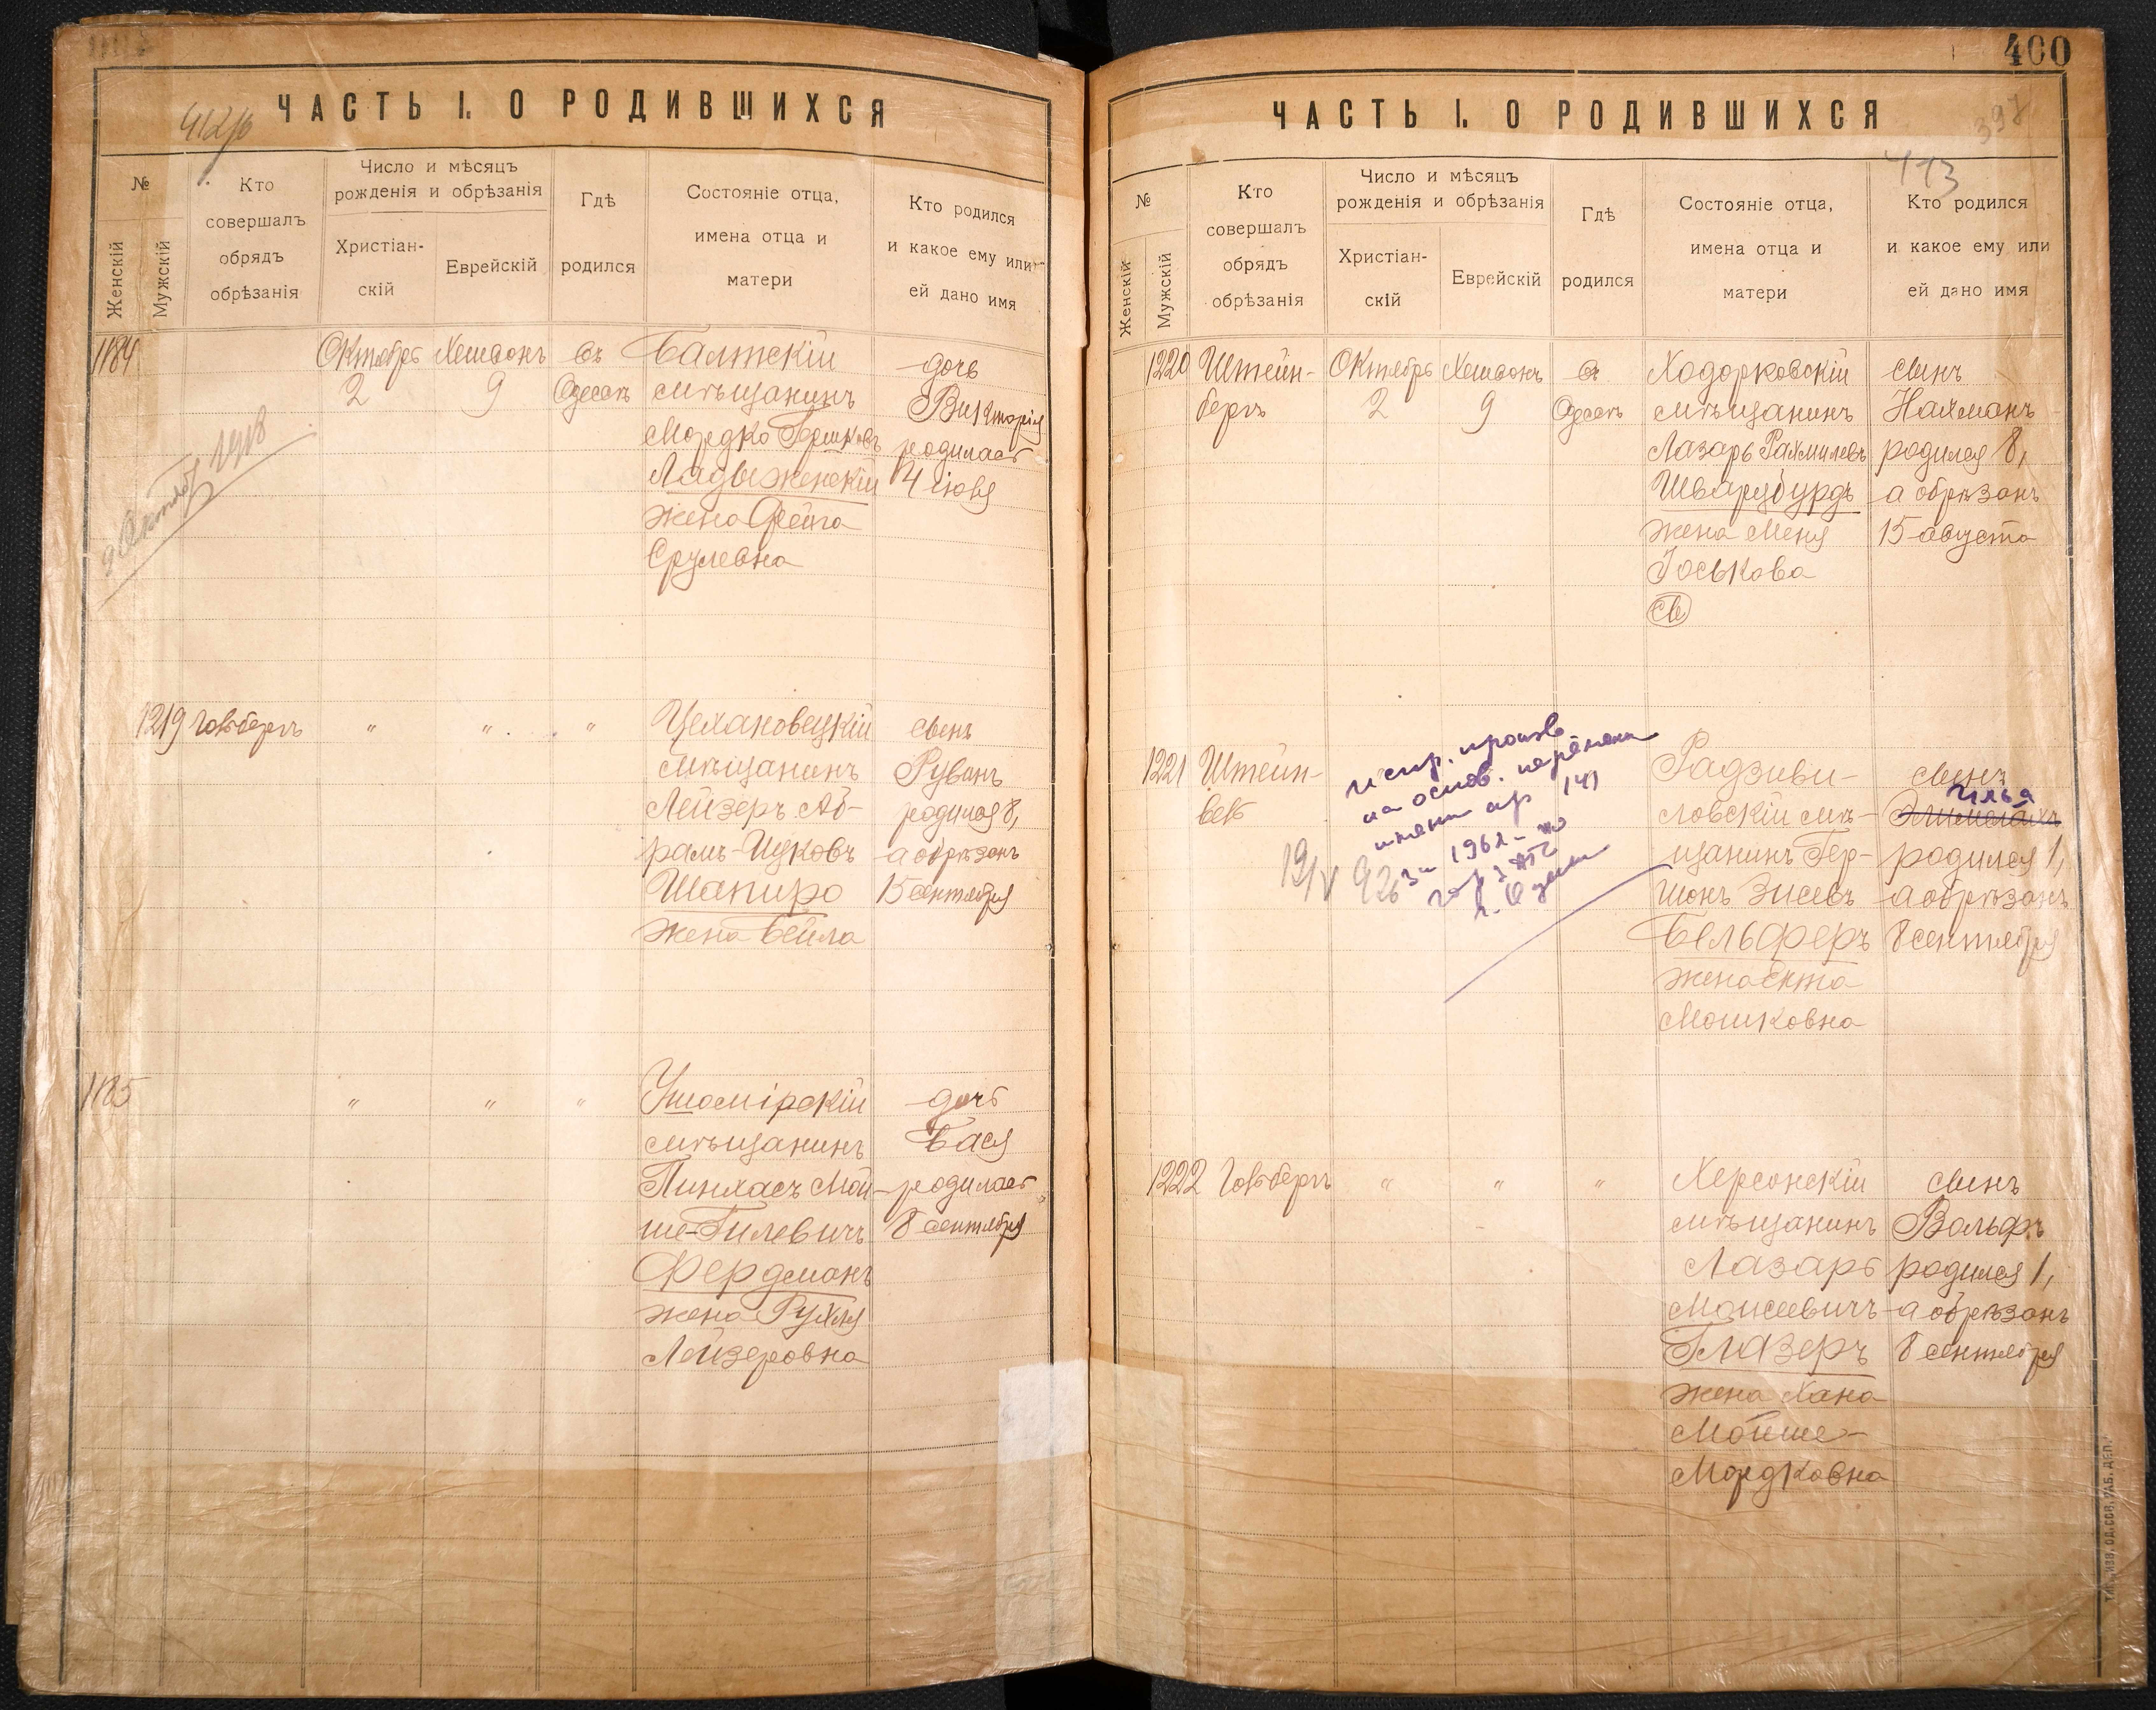 ЧАСТЬ I. О РОДИВШИХСЯ
№
Женскій
Мужскій
Кто
совершалъ
обрядъ
обрѣзанія
Число и мѣсяцъ
рожденія и обрѣзанія
Христіан-
скій
Еврейскій
Гдѣ
родился
Состояніе отца,
имена отца и
матери
Кто родился
и какое ему или
ей дано имя
1184
Октябрь
2
Хешвонъ
9
въ
Одессѣ
Балтскій
мѣщанинъ
Мордко Гершковъ
Ладыженскій
жена Фейга
Срулевна
дочь
Викторія
родилась
4 іюня
1918
1219
Гольдбергъ
"
"
"
Цехановецкій
мѣщанинъ
Лейзеръ Аб-
рамъ-Ицковъ
Шапиро
жена Бейла
сынъ
Рувинъ
родился 8,
а обрѣзанъ
15 сентября
1185
"
"
"
Ушомірскій
мѣщанинъ
Пинхасъ Мой-
ше-Гилевичъ
Фердманъ
жена Рухля
Лейзеровна
дочь
Бася
родилась
8 сентября
400
397
413
ЧАСТЬ I. О РОДИВШИХСЯ
№
Женскій
Мужскій
Кто
совершалъ
обрядъ
обрѣзанія
Число и мѣсяцъ
рожденія и обрѣзанія
Христіан-
скій
Еврейскій
Гдѣ
родился
Состояніе отца,
имена отца и
матери
Кто родился
и какое ему или
ей дано имя
1220
Штейн-
бергъ
Октябрь
2
Хешвонъ
9
въ
Одессѣ
Ходорковскій
мѣщанинъ
Лазарь Рахмилевъ
Шварцбурдъ
жена Меня
Іоськова
сынъ
Нахманъ
родился 8,
а обрѣзанъ
15 августа
1221
Штейн-
бекъ
испр. произв
на основ. перемены
имени ар 141
за 1962
г. Одессы
Радзиви-
ловскій мѣ-
щанинъ Гер-
шонъ Зисевъ
Бельферъ
жена Ента
Мошковна
сынъ
Илья
Элимелахъ
родился 1,
а обрѣзанъ
8 сентября
1222
Гольдбергъ
"
"
"
Херсонскій
мѣщанинъ
Лазарь
Моисеевичъ
Глазеръ
жена Хана
Мойше-
Мордковна
сынъ
Вольфъ
родился 1,
а обрѣзанъ
8 сентября